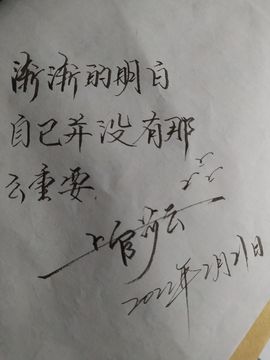 渐渐的明白
自己并没有那
么重要
上官诗云
2022年2月21日